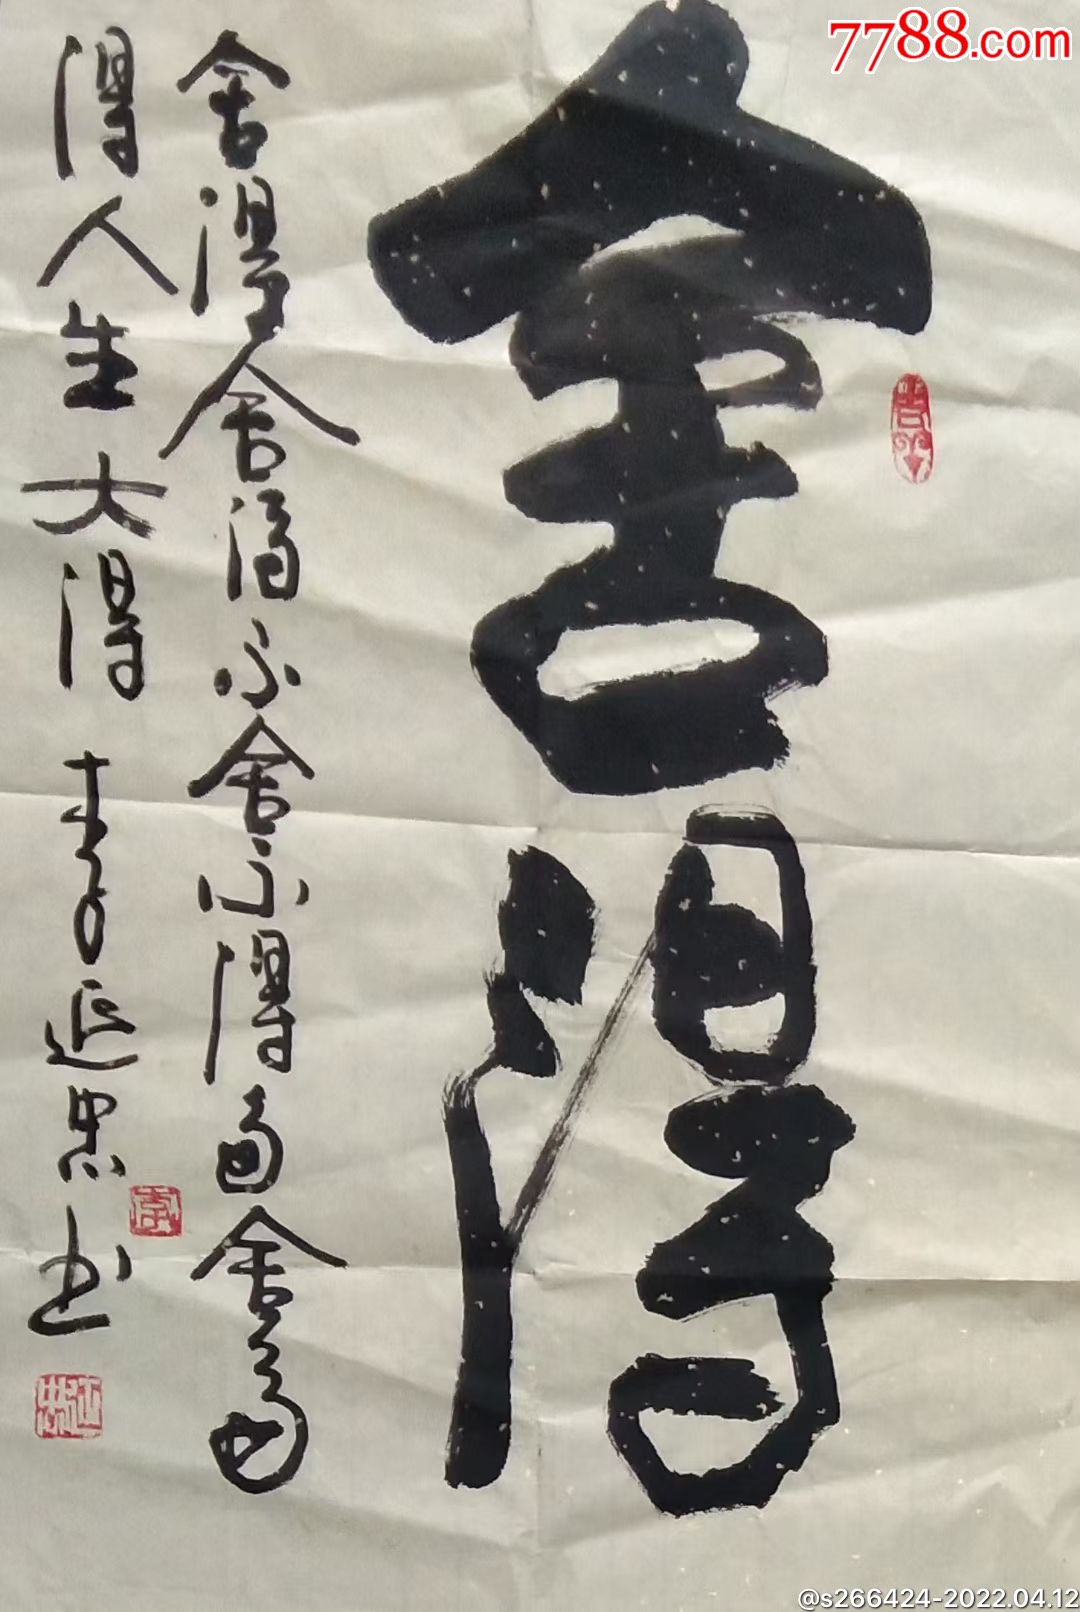 7788.com
舍得
舍得舍得不舍不得多舍多
得人生大得 李延忠书
@s266424-2022.04.12